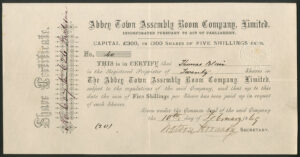 Abbey Town Assembly Room Company, Limited.
INCORPORATED PURSUANT TO ACT OF PARLIAMENT.
CAPITAL £300, IN 1200 SHARES OF FIVE SHILLINGS EACH.
Share Certificate.
No.
THIS is to CERTIFY that Thomas
is the Registered Proprietor of Twenty Shares in
The Abbey Town Assembly Room Company, Limited.
subject to the regulations of the said Company, and that up to this
date the sum of Five Shillings per Share has been paid up in respect
of such Shares.
Given under the Common Seal of the said Company
the 10th day of February
SECRETARY.